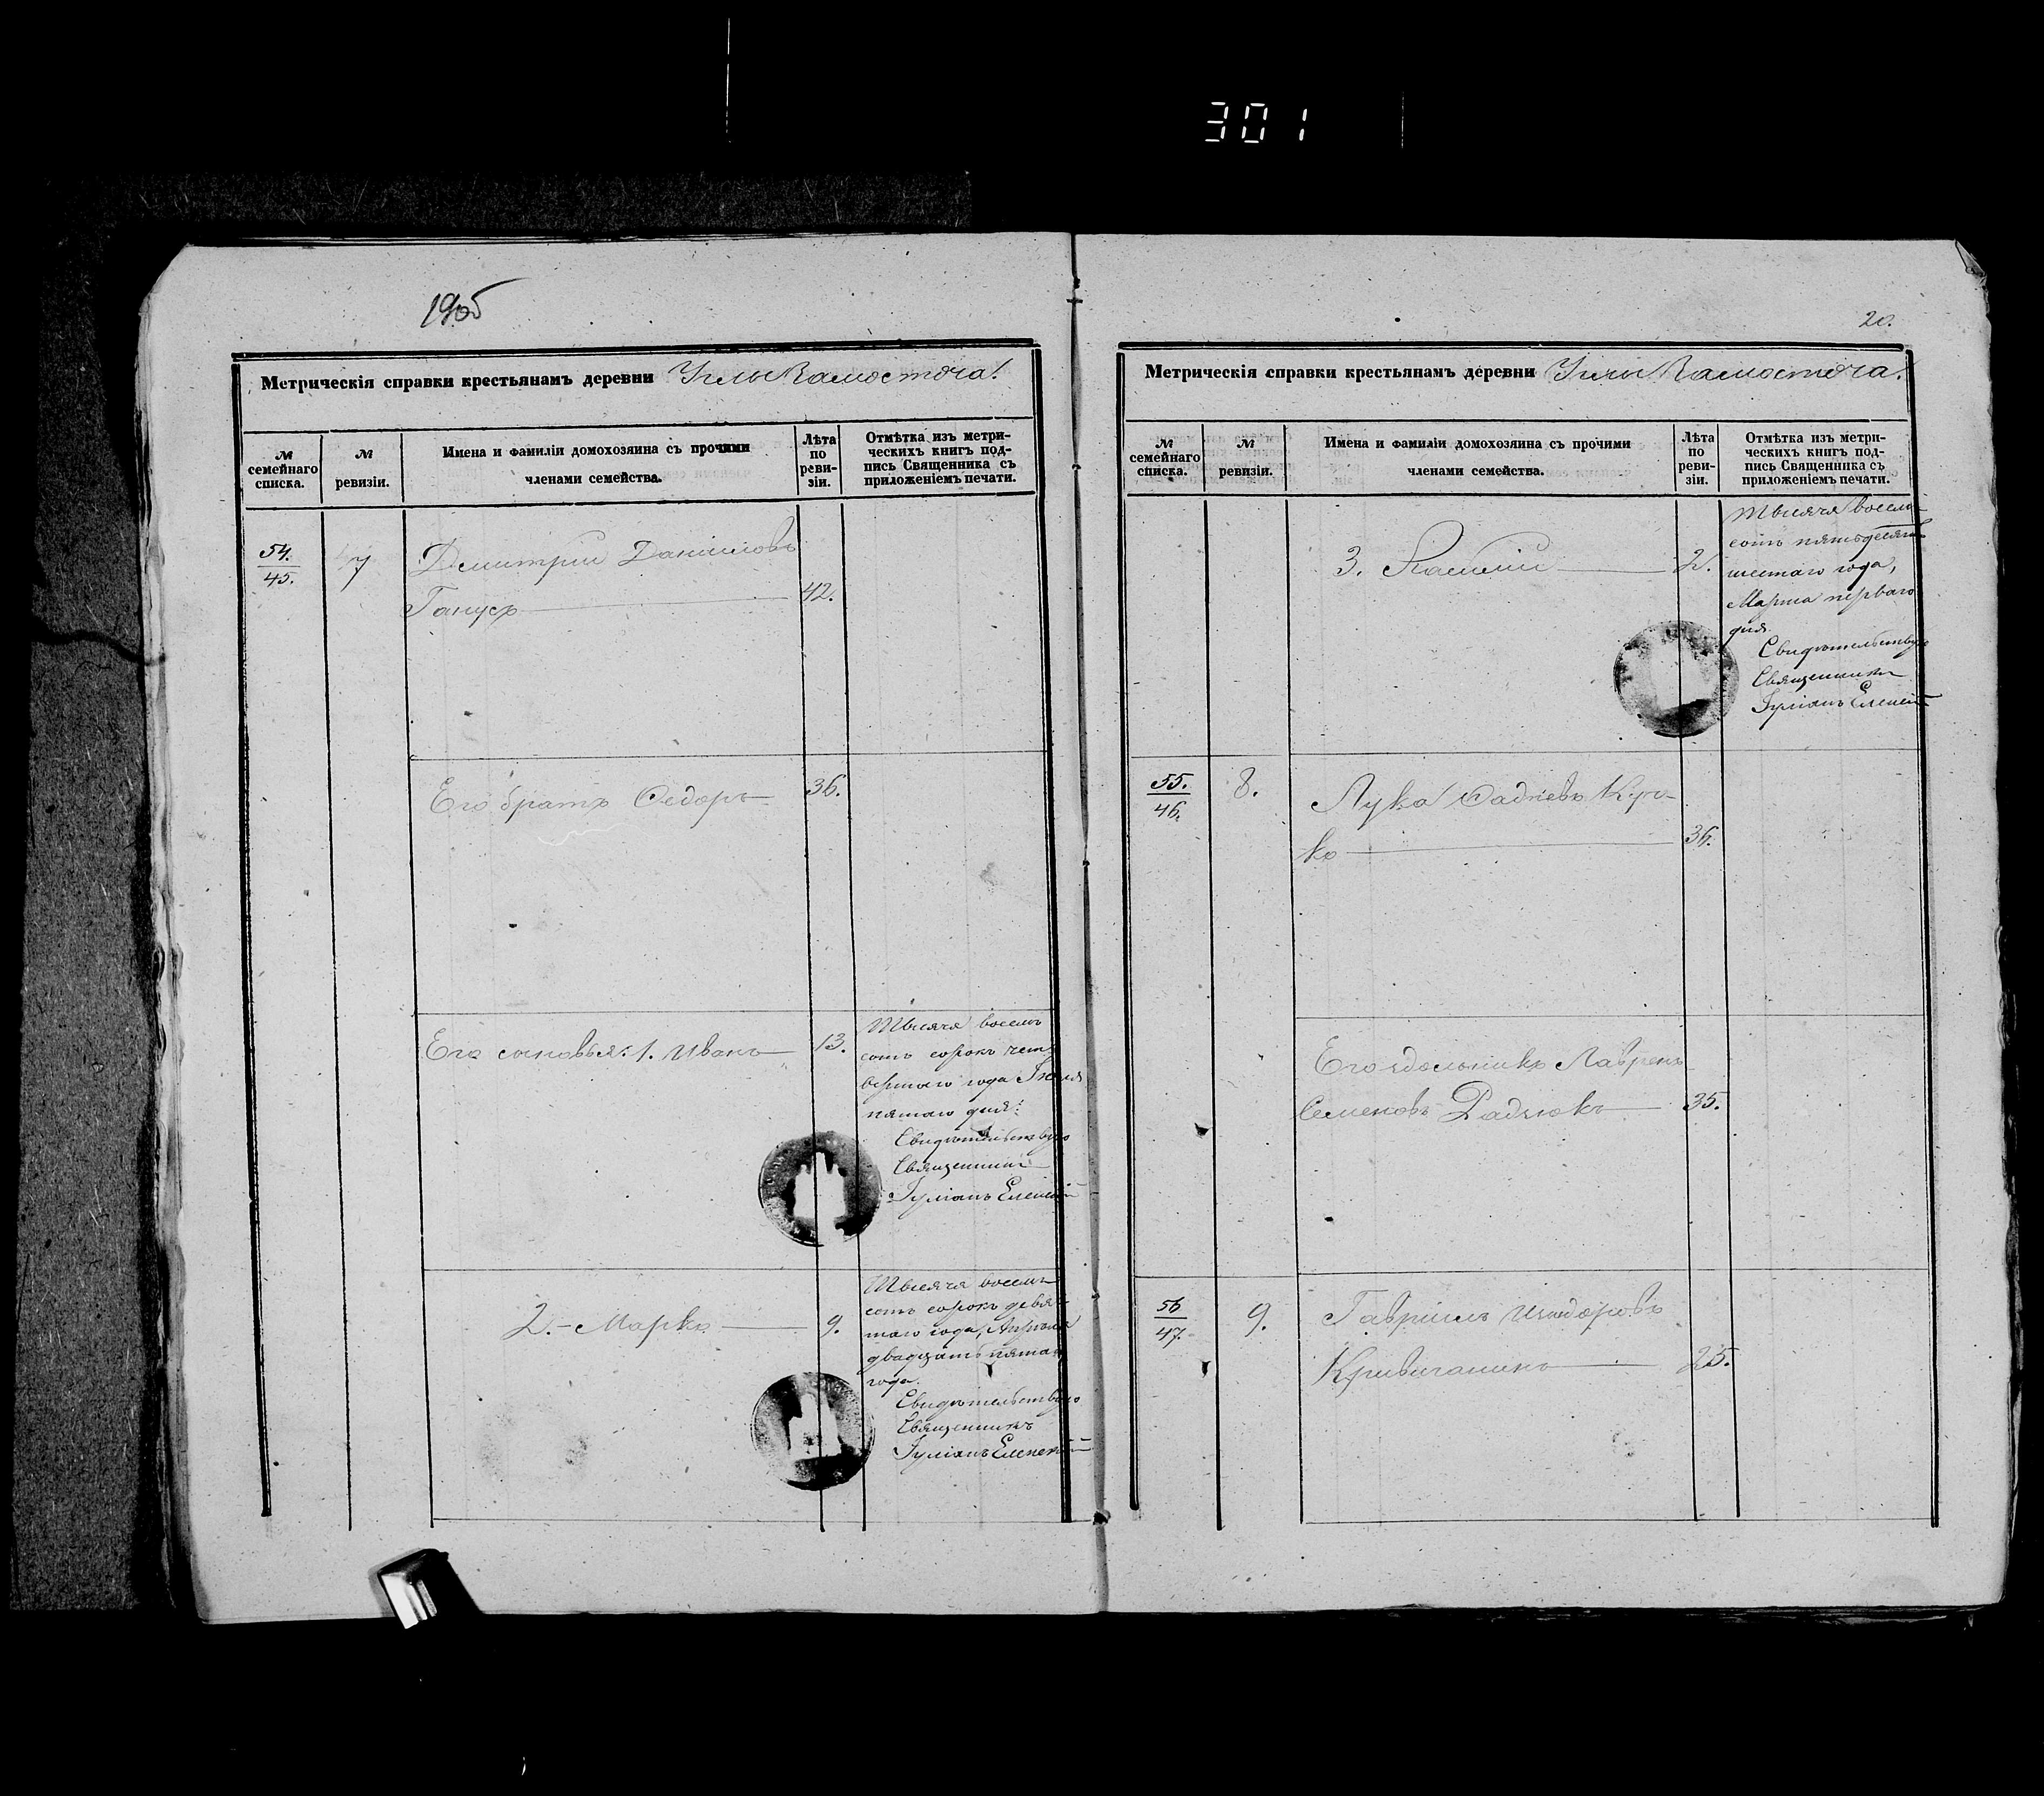 301
19об
Метрическія справки крестьянамъ деревни Углы Замосточа.
№ семейнаго списка.
№ ревизіи.
Имена и фамиліи домохозяина съ прочими
членами семейства.
Лѣта по реви-зіи.
Отмѣтка изъ метри-
ческихъ книгъ под-
пись Священника съ
приложеніемъ печати.
54.
45.
7
Дмитрій Даніиловъ
Ганусъ 42.
Его братъ Ѳедоръ 36.
Его сыновья: 1. Иванъ 13.
Тысяча восемь
сотъ сорокъ чет
вертаго года Іюля
пятаго дня.
Свидѣтельствую
Священникъ
Іуліанъ
2. Марко 9.
Тысяча восемь
сотъ сорокъ девя
таго года, Апрѣля
двадцать пятаго
года.
Свидѣтельствую
Священникъ
Іуліанъ
20.
Метрическія справки крестьянамъ деревни Углы Замосточа.
№ семейнаго списка.
№ ревизіи.
Имена и фамиліи домохозяина съ прочими
членами семейства.
Лѣта по реви-зіи.
Отмѣтка изъ метри-
ческихъ книгъ под-
пись Священника съ
приложеніемъ печати.
3. 2.
Тысяча восемь
сотъ пятьдесятъ
шестаго года,
Марта перваго
дня.
Свидѣтельствую
Священникъ
Іуліанъ
55.
46.
8.
Лука
36.
Его здольникъ Лаврен
Семеновъ Радзюкъ 35.
56
47.
9.
Гавріилъ
Кривичанинъ 25.